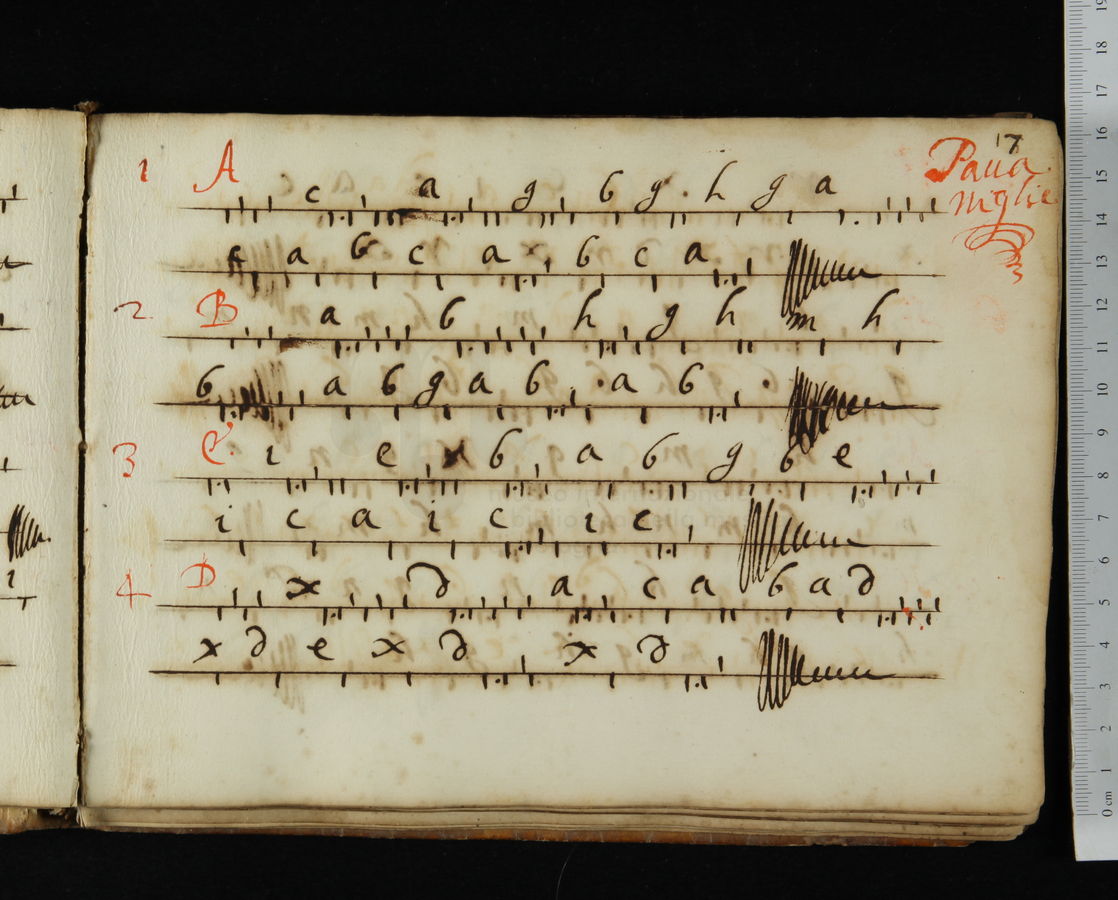 17
Paua
niglie
1 A c a g b g h g a
c a b c a b c a
2 B a b h g h m h
b a b g a b a b
3 C i e b a b g b e
i c a i c i c
4 D x d a c a b a d
x d e x d x d